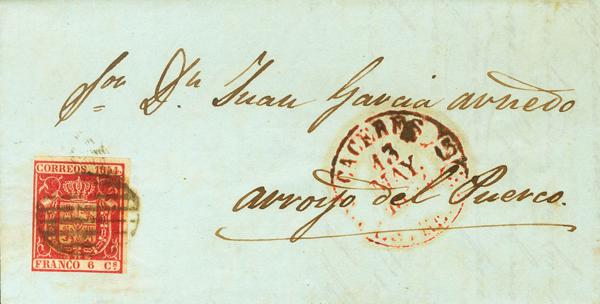 Sor Dn Juan Garcia arnedo
CACERES
13
MAY
arroyo del Puerco.
CORREOS 1854
FRANCO 6 Cs